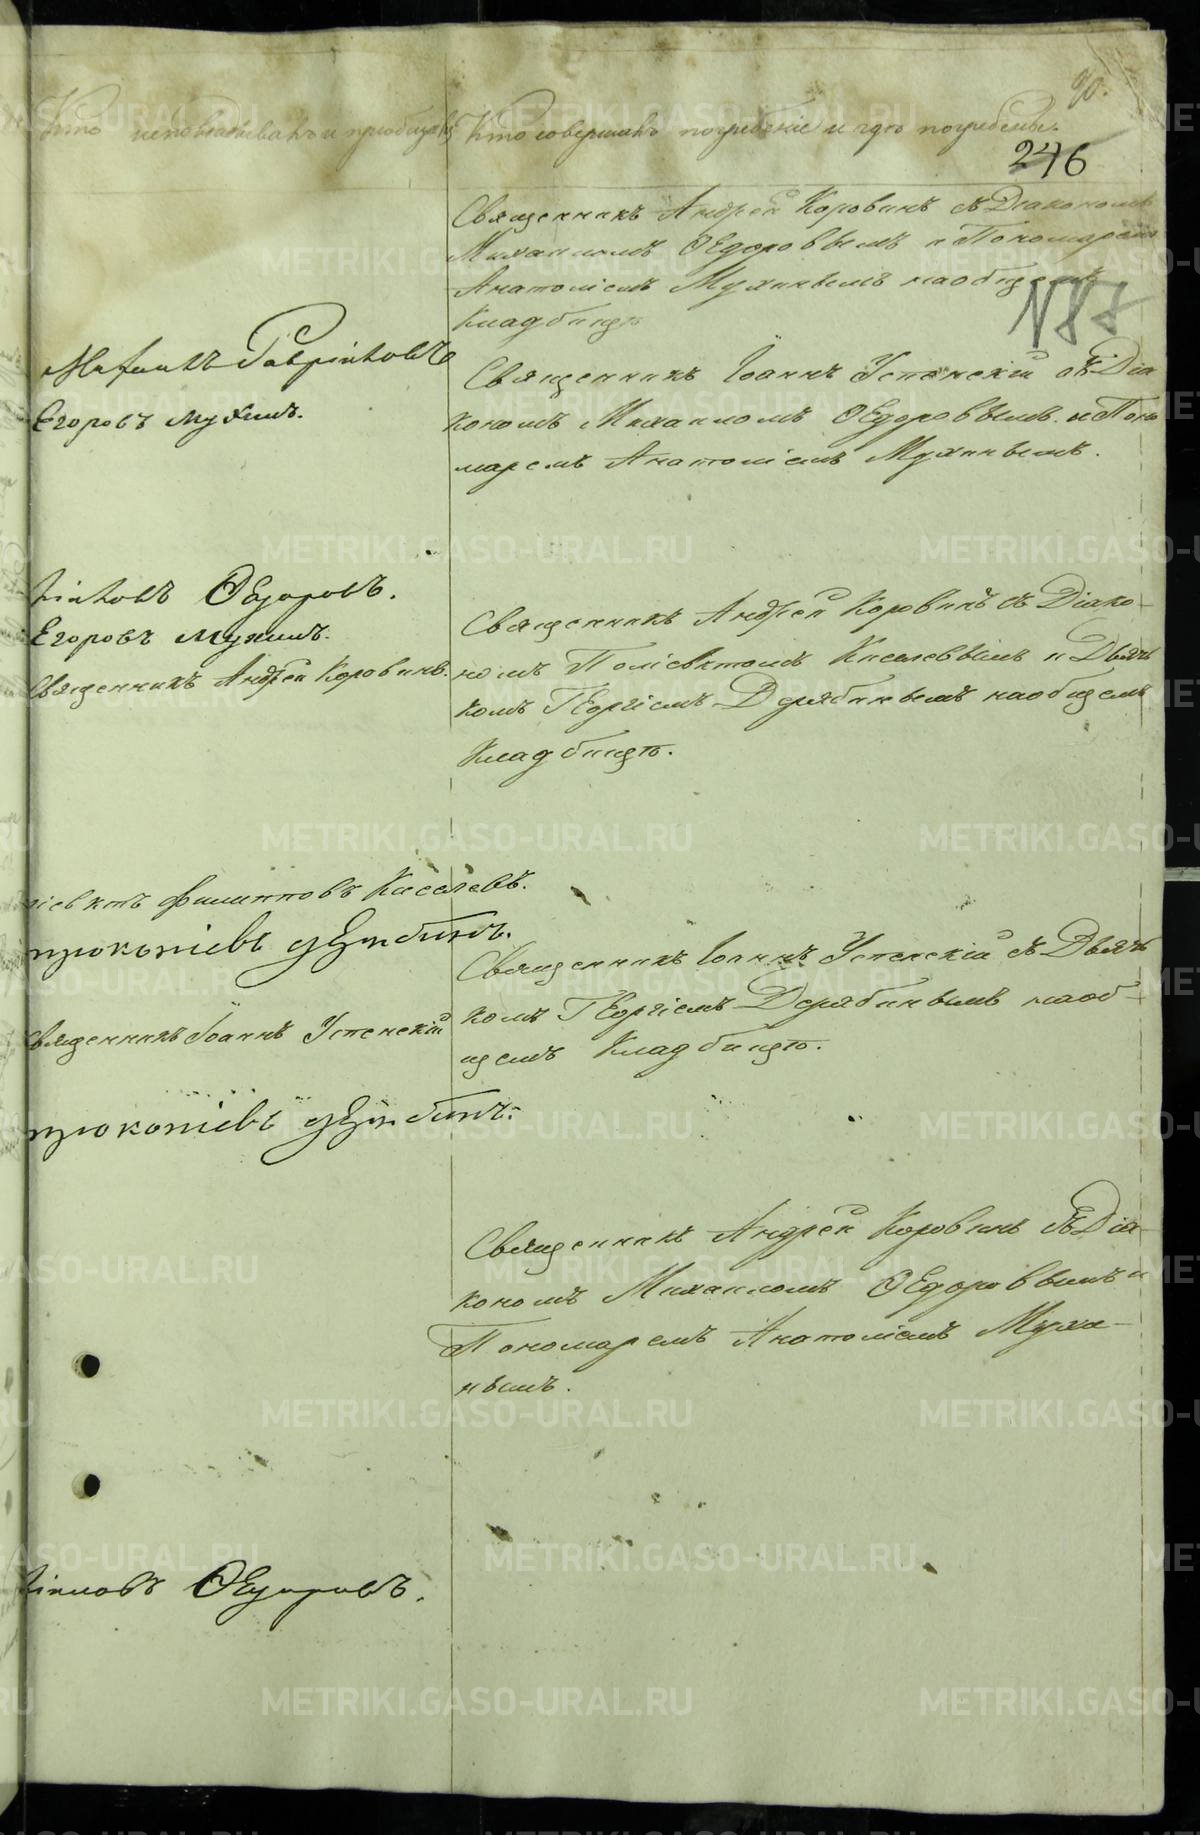 90.
Кто исповѣдывалъ и пріобщалъ
Кто совершалъ погребеніе и гдѣ погребены.
246
Священникъ Андрей Коровинъ съ Діакономъ
Михаиломъ Ѳедоровымъ и Пономаремъ
Анатоліемъ Мухинымъ на общемъ
Кладбищѣ
N 87
Михаилъ Гавріиловъ
Егоровъ Мухинъ.
Священникъ Іоаннъ Успенскій съ Діа
кономъ Михаиломъ Ѳедоровымъ и Поно
маремъ Анатоліемъ Мухинымъ.
ріиловъ Ѳедоровъ.
Егоровъ Мухинъ.
Священникъ Андрей Коровинъ.
Священникъ Андрей Коровинъ съ Діако-
номъ Поліевктомъ Киселевымъ и Дьяч
комъ Георгіемъ Дерябинымъ на общемъ
Кладбищѣ.
ліевктъ Филипповъ Киселевъ.
Прокопіевъ Дерябинъ.
Священникъ Іоаннъ Успенскій
Прокопіевъ Дерябинъ.
Священникъ Іоаннъ Успенскій съ Дьяч
комъ Георгіемъ Дерябинымъ на об-
щемъ Кладбищѣ.
Священникъ Андрей Коровинъ съ Діа-
кономъ Михаиломъ Ѳедоровымъ и
Пономаремъ Анатоліемъ Мухи-
нымъ.
ріиловъ Ѳедоровъ.
METRIKI.GASO-URAL.RU